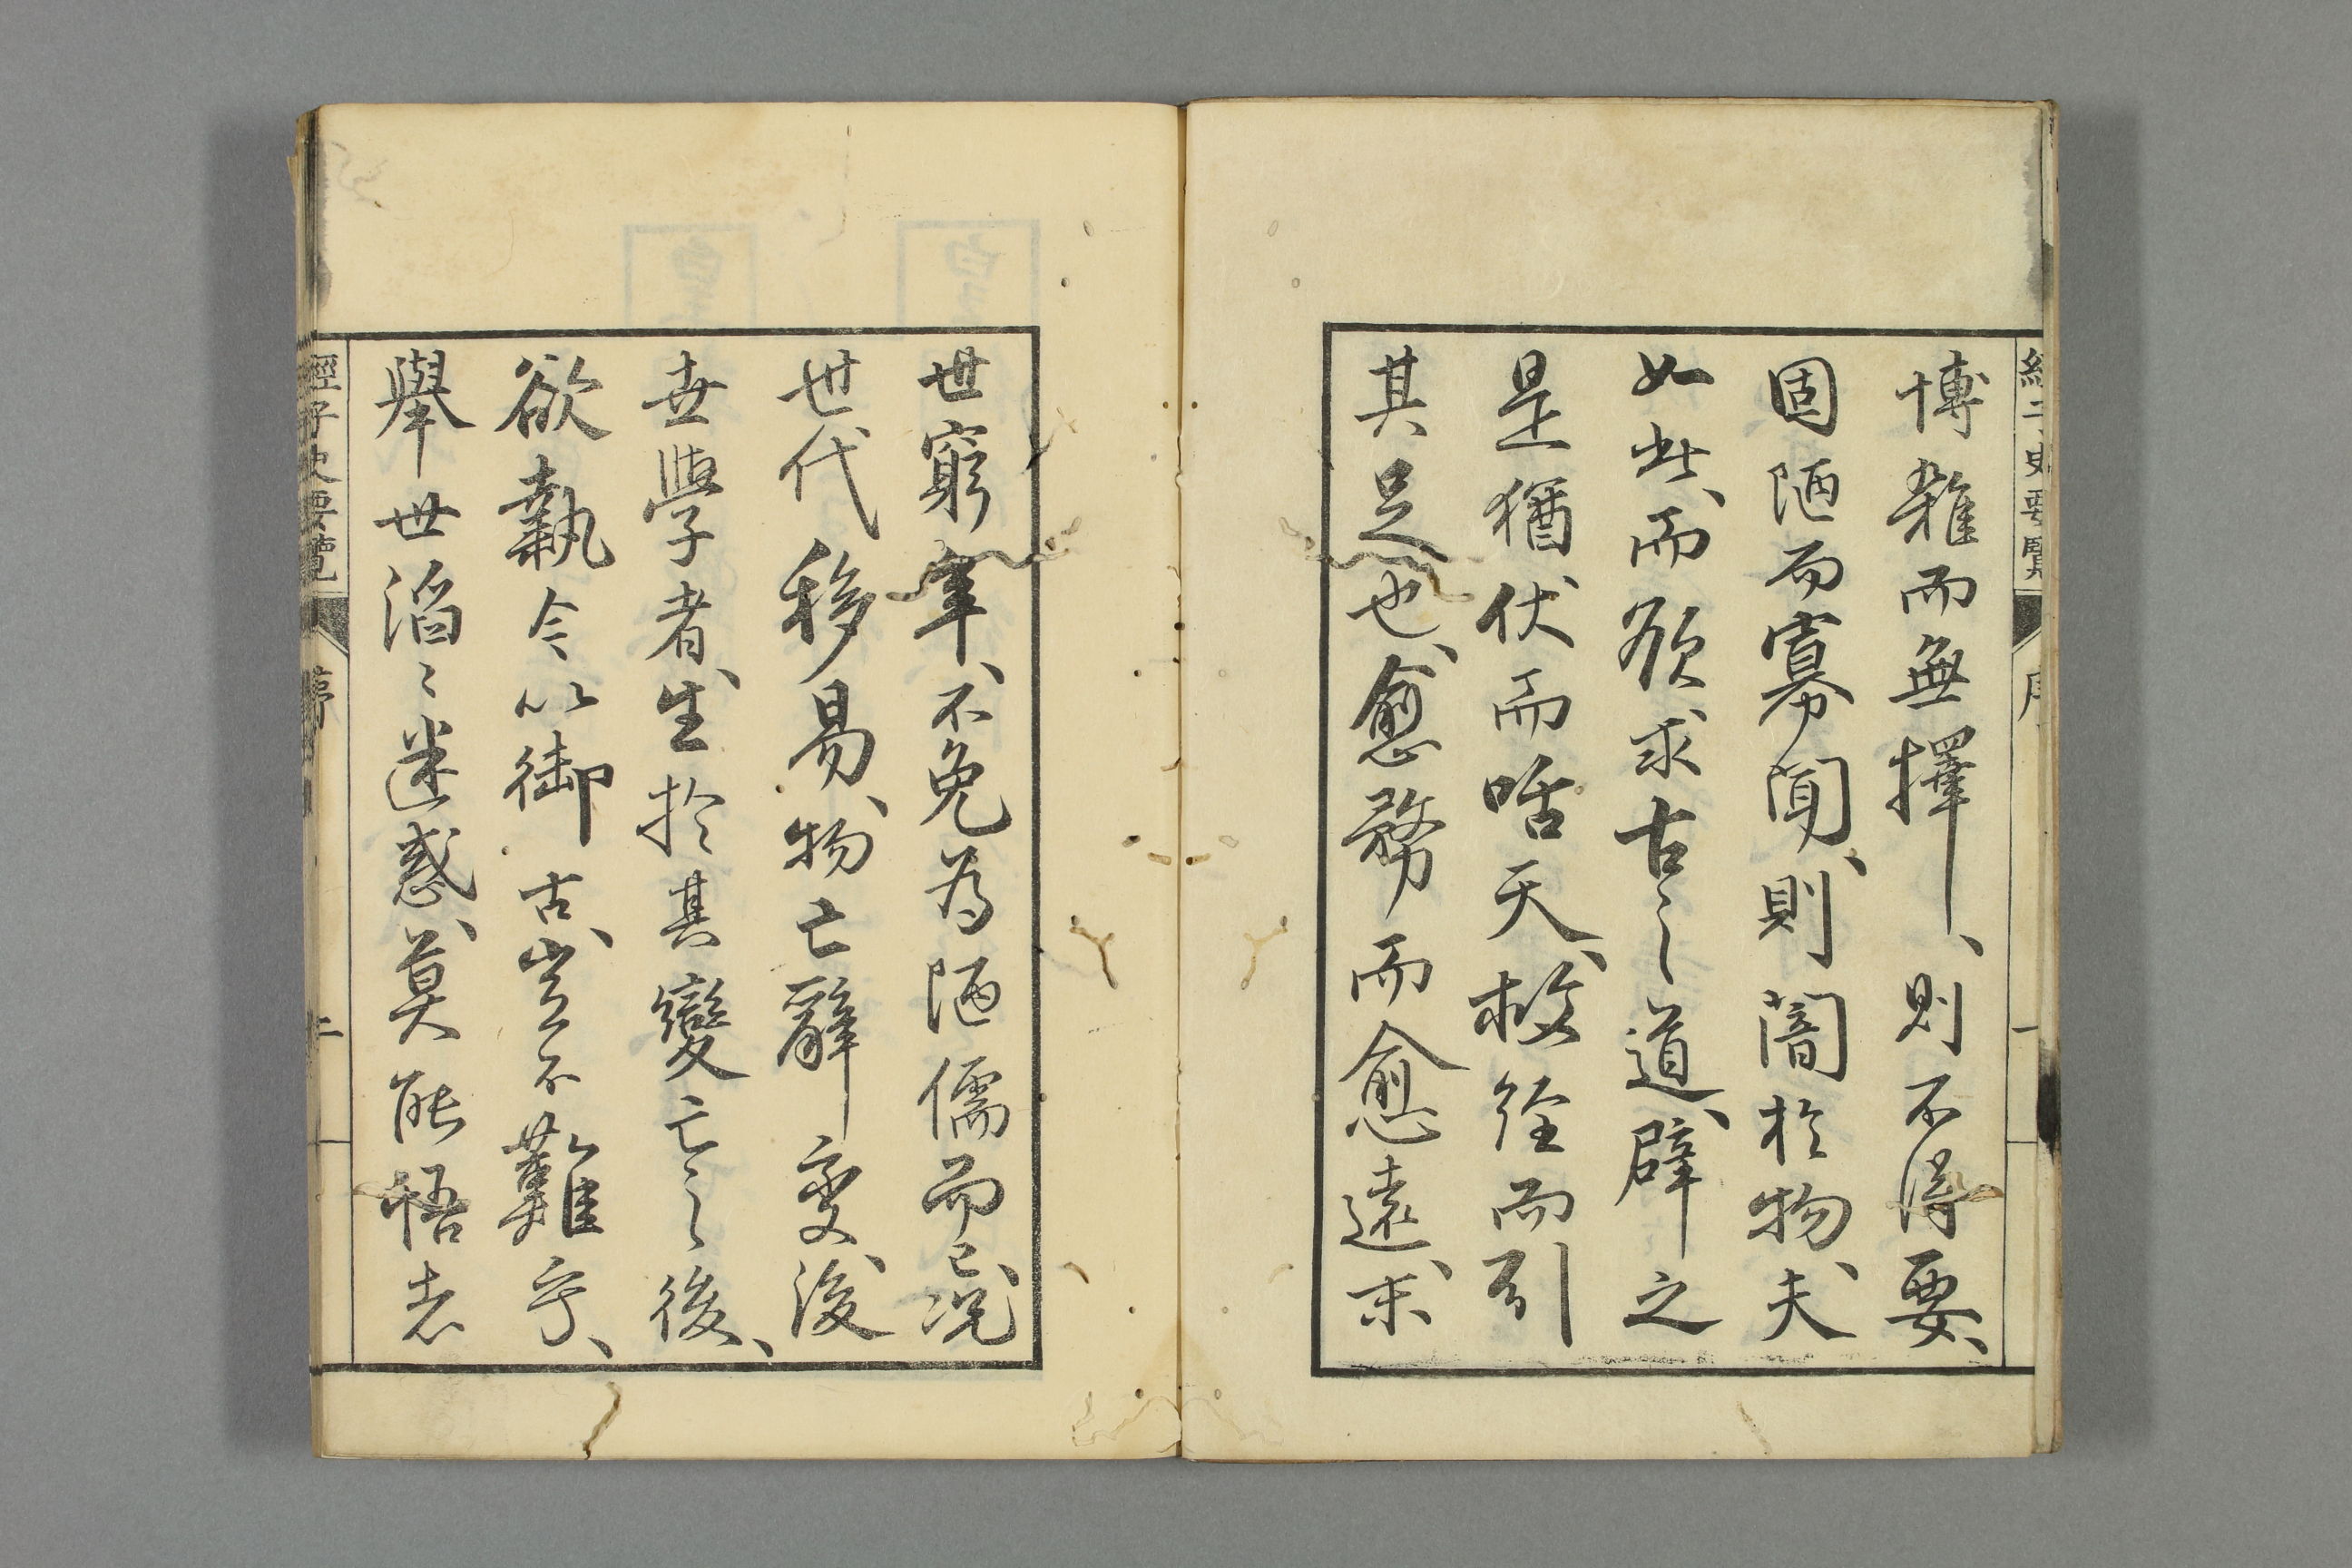 博雜而無擇、則不得要、
固陋而寡聞、則闇於物、夫
如此、而欲求古之道、辟之
是猶伏而咶天、救経而引
其足也、愈務而愈遠、末
世窮年、不免為陋儒而已、況
世代移易、物亡辭変、後
世學者、生於其變亡之後、
欲執今以御古、豈不難乎、
舉世滔〻迷惑、莫能悟者
經子史要覽
序
二